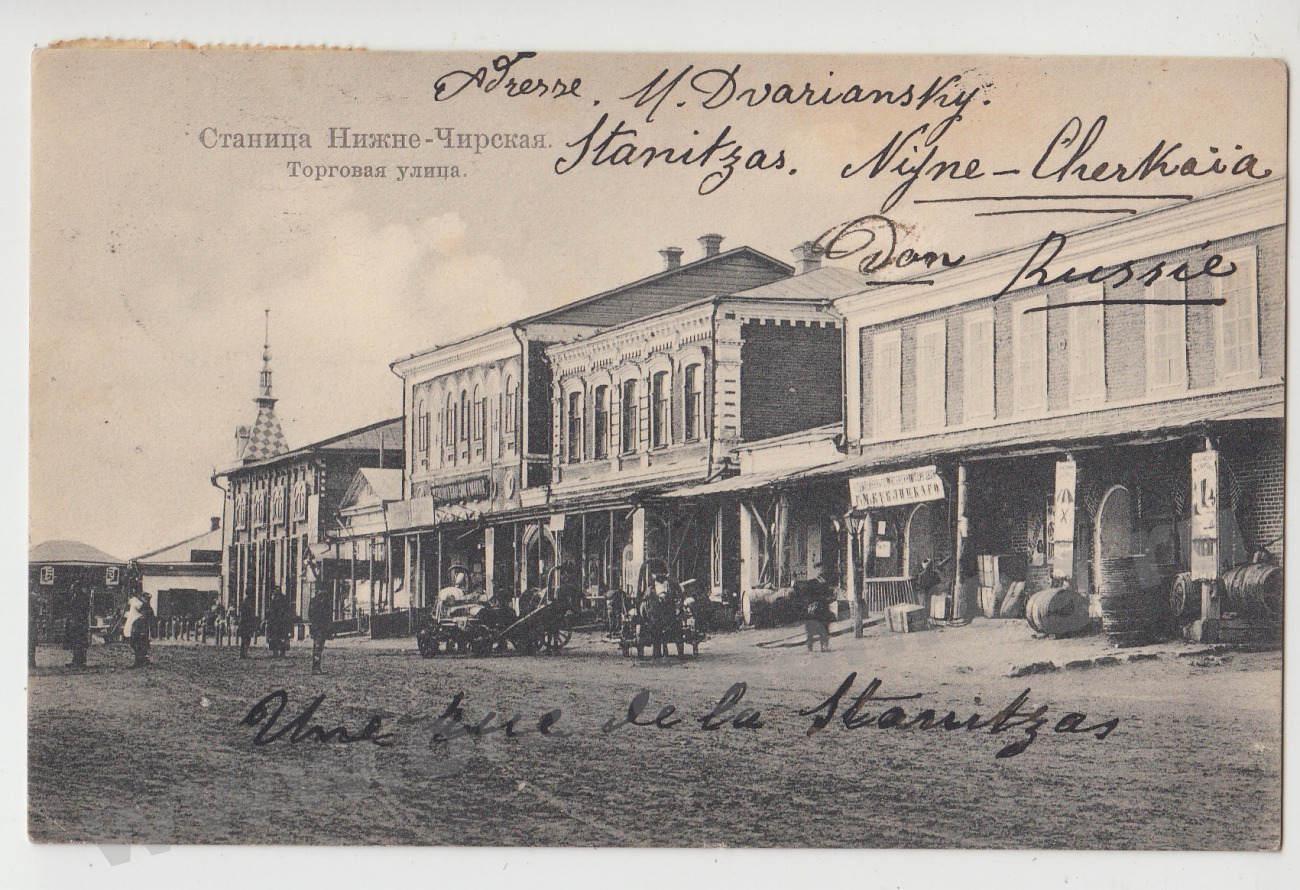 Adresse. M. Dvariansky.
Станица Нижне-Чирская.
Торговая улица.
Stanitzas. Nijne-Cherkaïa
Don Russie
Une rue de la Stanitzas